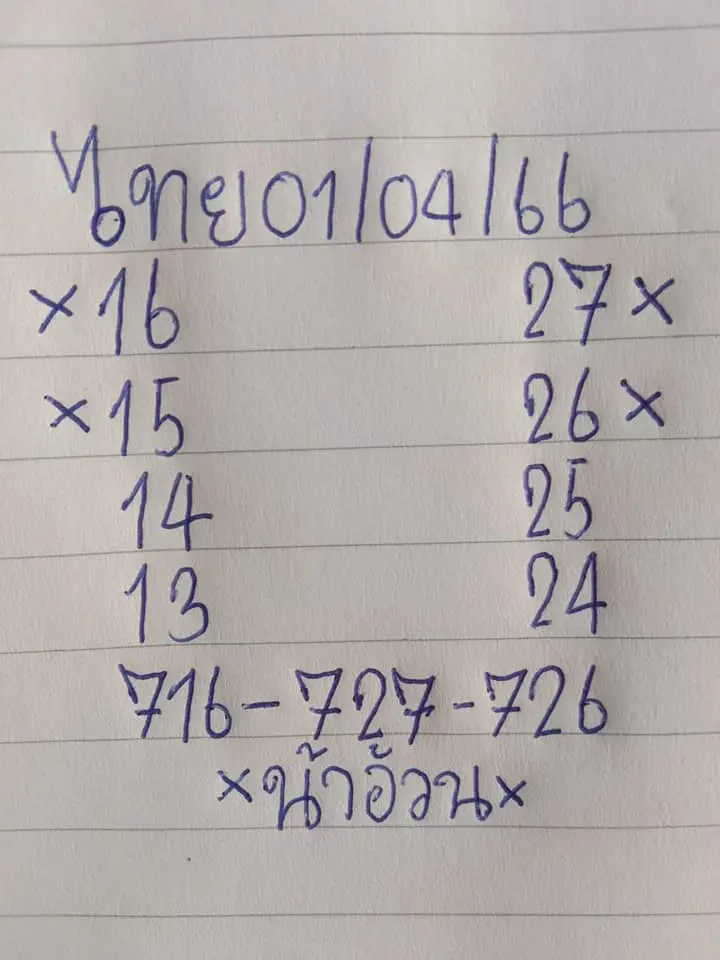 ไทย01/04/66
×16 27×
×15 26×
14 25
13 24
716-727-726
×น้าอ้วน×